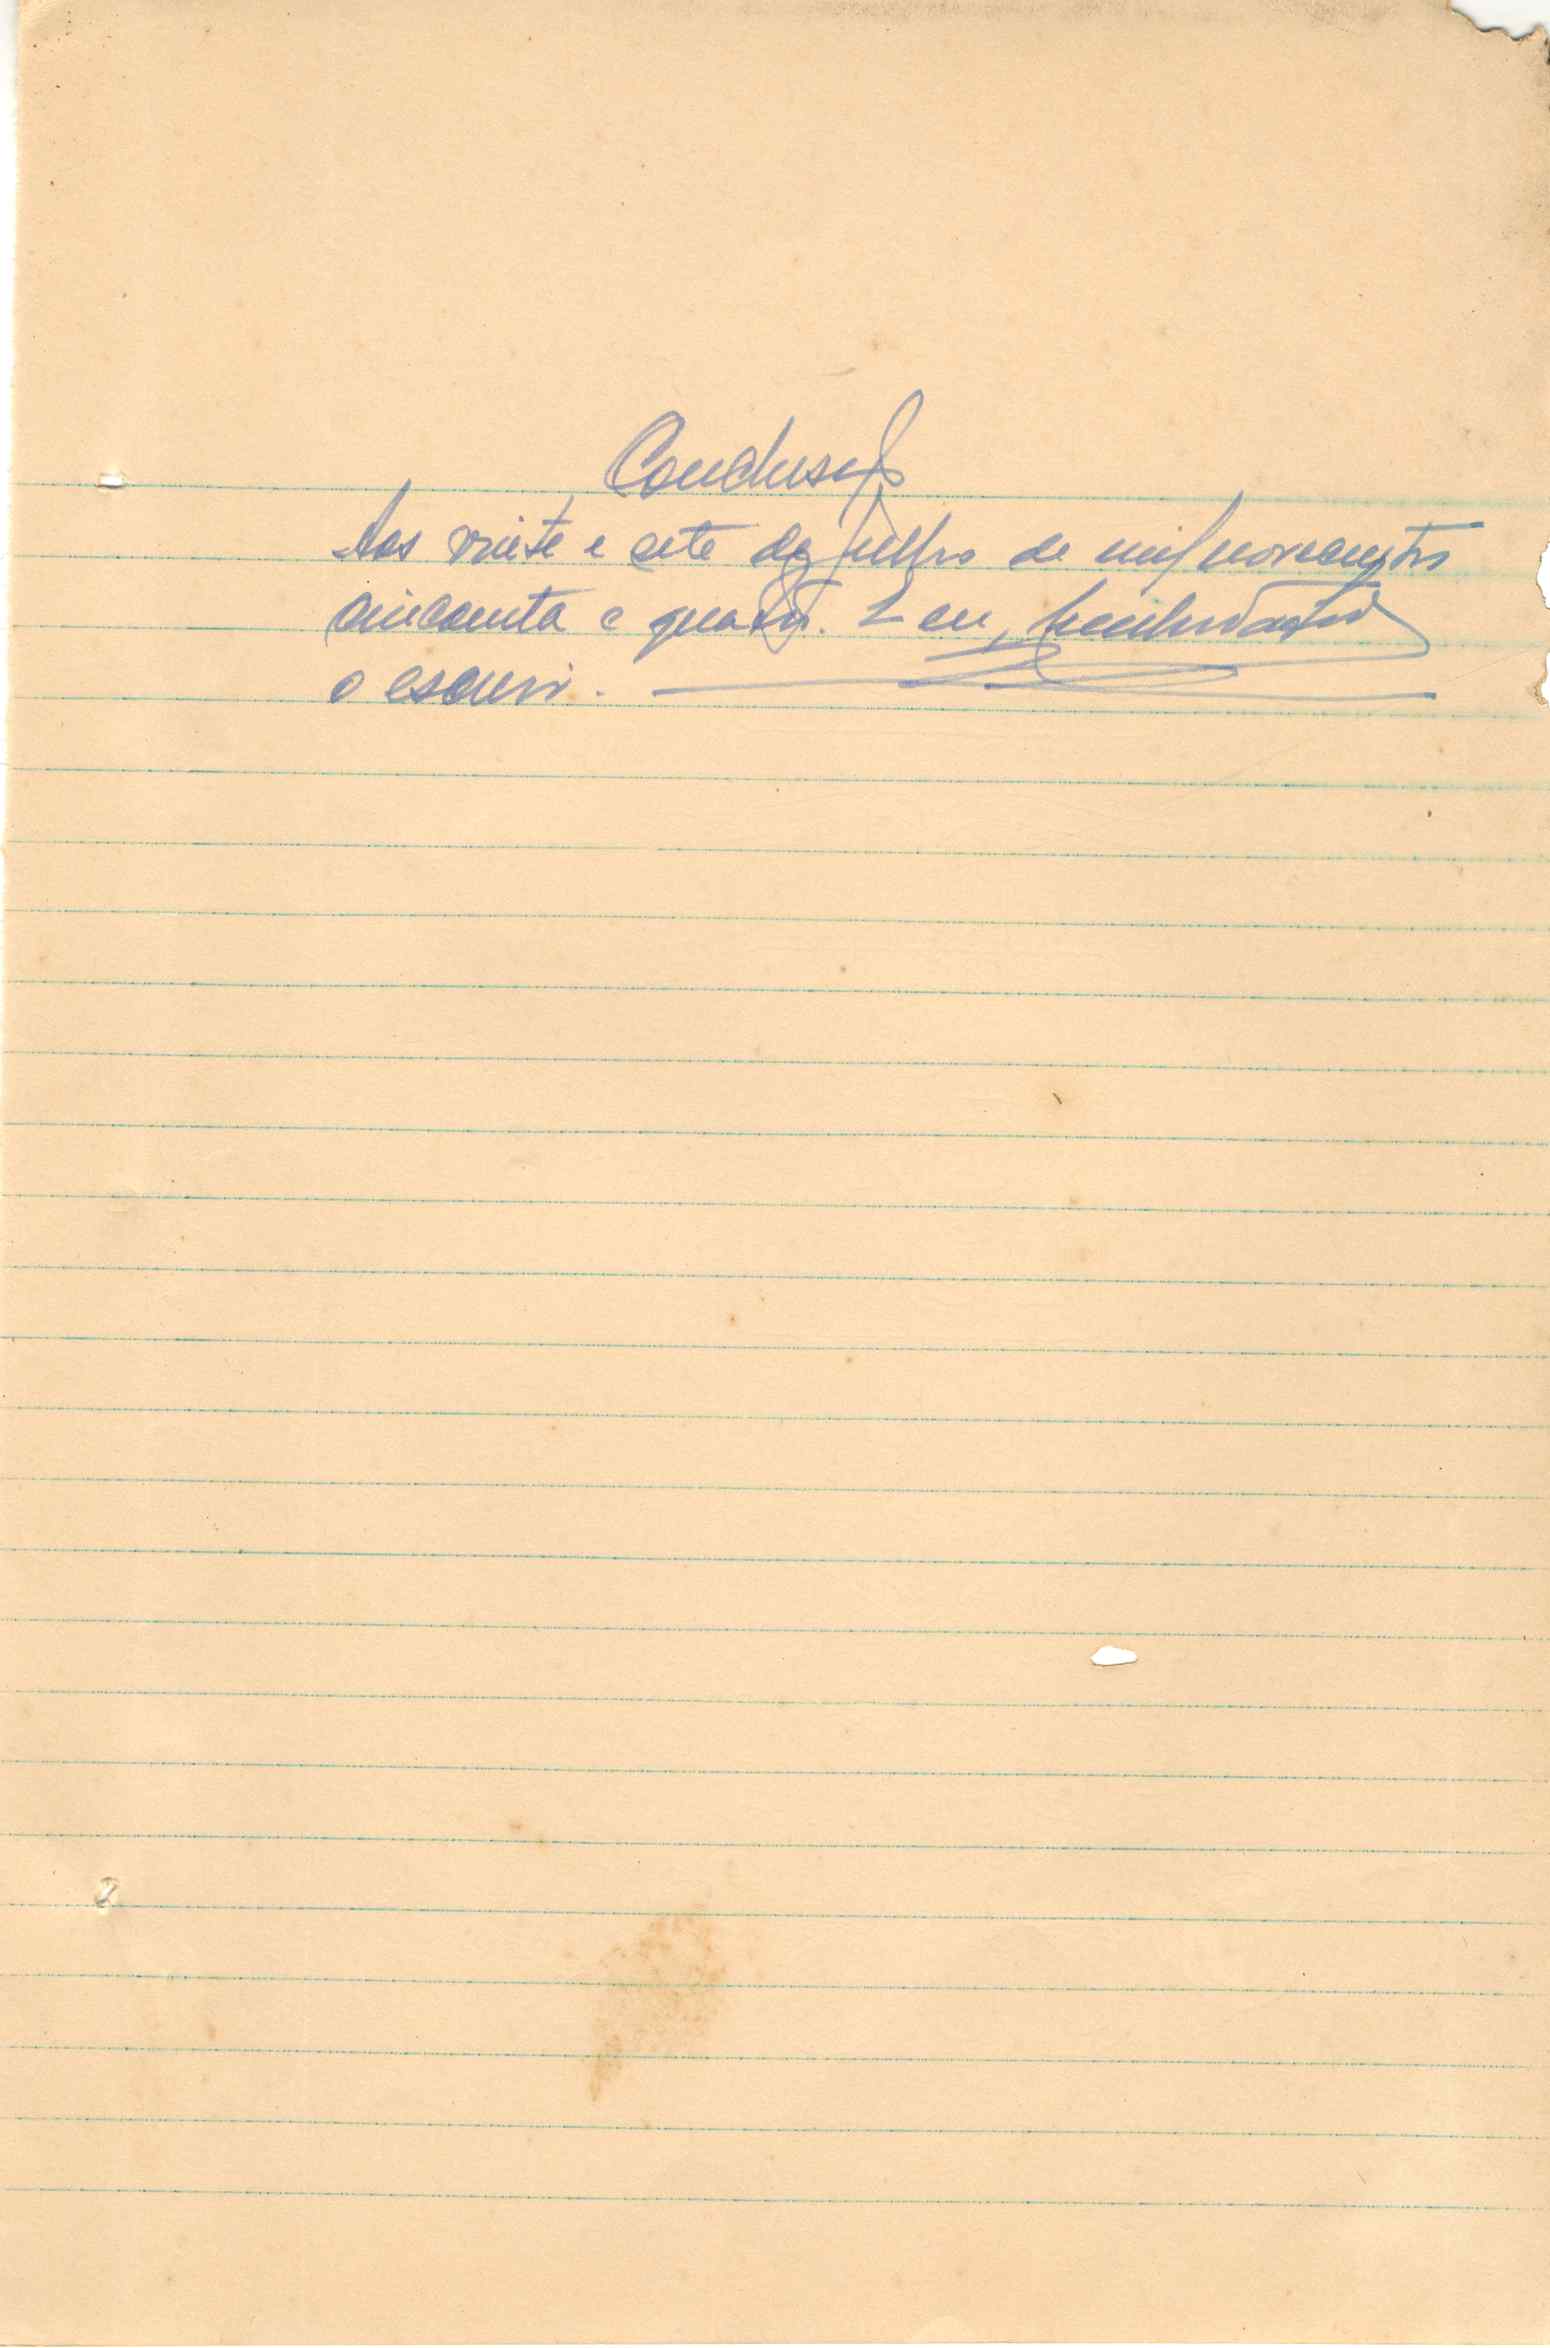 Conclusão
Aos vinte e sete de julho de mil novecentos
cincoenta e quatro. E eu,
o escrevi.